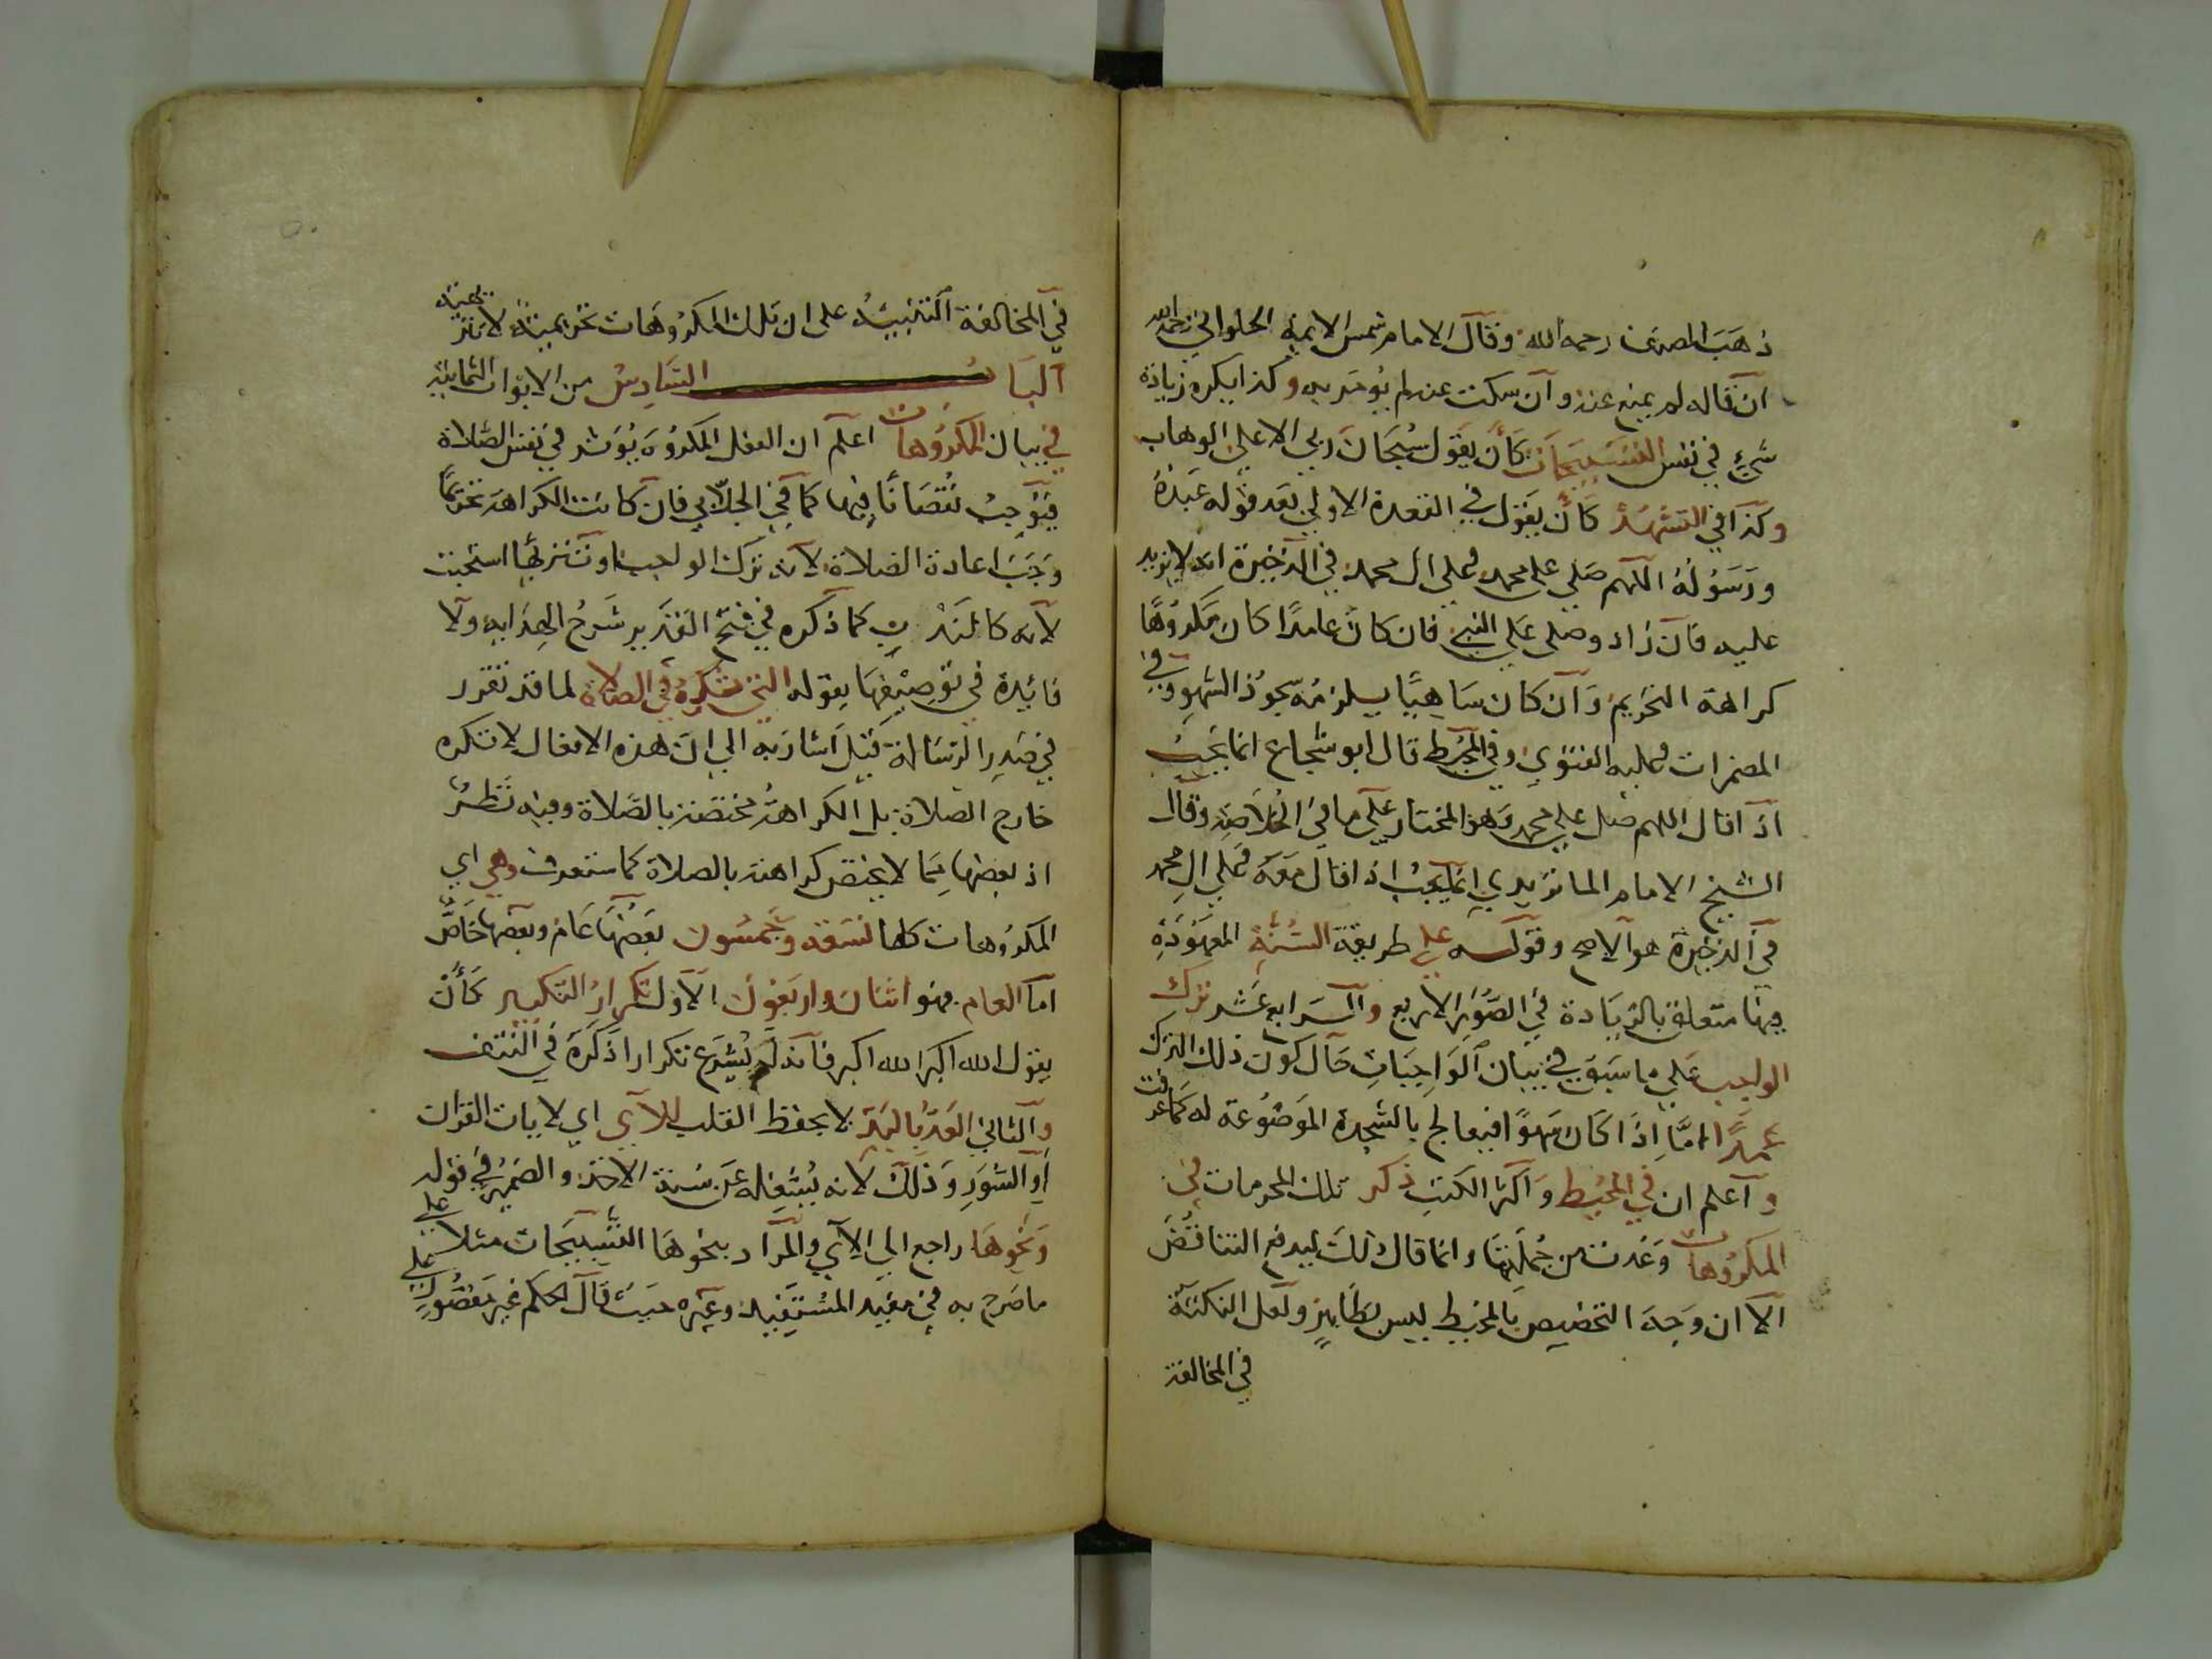 ذهب المصنف رحمه الله وقال الامام شمس الايمة الحلواني رحمه الله
ان قاله لم يمنع عنه وان سكت عنه لم يؤمر به وكذا يكره زيادة
شيء في نفس التسبيحات كأن يقول سبحان ربي الاعلى الوهاب
وكذا في التشهد كأن يقول في القعدة الاولي بعد قوله عبده
ورسوله اللهم صلي على محمد وعلى ال محمد في الذخيرة انه لا يزيد
عليه فان زاد وصلى على النبي فان كان عامدا كان مكروها
كراهة التحريم وان كان ساهيا يلزمه سجود السهو وفي
المضمرات وعليه الفتوي وفي المحيط قال ابو شجاع انما يجب
اذا قال اللهم صل علي محمد وهو المختار علي ما في الخلاصة وقال
الشيخ الامام الماتريدي انما يجب اذا قال معه وعلي ال محمد
في الذخيرة هو الاصح وقوله علي طريقة السنة المعهودة
فيها متعلق بالزيادة في الصور الاربع والرابع عشر ترك
الواجب علي ما سبق في بيان الواجبات حال كون ذلك الترك
عمدا اما اذا كان سهوا فيعالج بالسجدة الموضوعة له كما عرفت
واعلم ان في المحيط واكثر الكتب ذكر تلك المحرمات في
المكروهات وعدت من جملتها وانما قال ذلك ليدفع التناقض
الا ان وجه التخصيص بالمحيط ليس بظاهر ولعل النكتة
في المخالفة
في المخالفة التنبيه على ان تلك المكروهات تحريمية لا تنزيهية
الباب السادس من الابواب الثمانية
في بيان المكروهات اعلم ان الفعل المكروه يؤثر في نفس الصلاة
فيوجب نقصانا فيها كما في الجلابي فان كانت الكراهة تحريما
وجب اعادة الصلاة لانه ترك الواجب او تنزيها استحبت
لانه كالمندوب كما ذكره في فتح القدير شرح الهداية ولا
فائدة في توصيفها بقوله التي تكره في الصلاة لما قد تقرر
في صدر الرسالة قيل اشار به الي ان هذه الافعال لا تكره
خارج الصلاة بل الكراهة مختصة بالصلاة وفيه نظر
اذ بعضها مما لا يختص كراهته بالصلاة كما ستعرف وهي اي
المكروهات كلها تسعة وخمسون بعضها عام وبعضها خاص
اما العام فهو اثنان واربعون الاول تكرار التكبير كأن
يقول الله اكبر الله اكبر فانه لم يشرع تكرارا ذكره في النتف
والثاني العد باليد لا بحفظ القلب للآي اي لايات القران
او السور وذلك لانه يشغله عن سنة الاخذ والضمير في قوله
ونحوها راجع الي الآي والمراد بنحوها التسبيحات مثلا علي
ما صرح به في مفيد المستفيد وغيره حيث قال الحكم غير مقصور علي